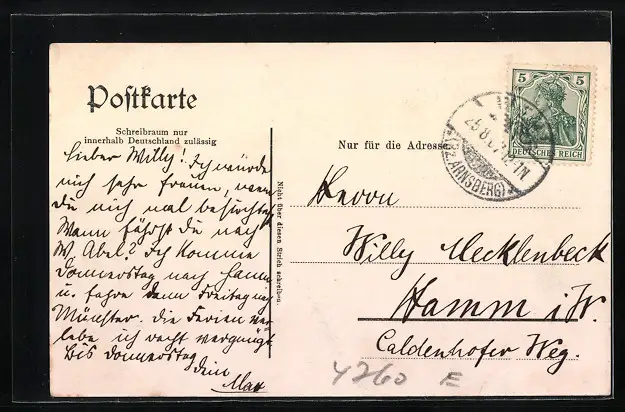 Postkarte
Schreibraum nur
innerhalb Deutschland zulässig
Lieber Willy! Ich würde
mich sehr freuen, wenn
du mich mal besuchtest
Wann fährst du nach
W. Abel? Ich komme
Donnerstag nach Hamm
u. fahre dann Freitag nach
Münster. Die Ferien ver-
lebe ich recht vergnügt.
Bis Donnerstag
dein
Max
Nicht über diesen Strich schreiben.
Nur für die Adresse.
5 5
DEUTSCHES REICH
25.8.07
(BZ. ARNSBERG)
Herrn
Willy Mecklenbeck
Hamm i. W.
Caldenhofer Weg.
4260 E